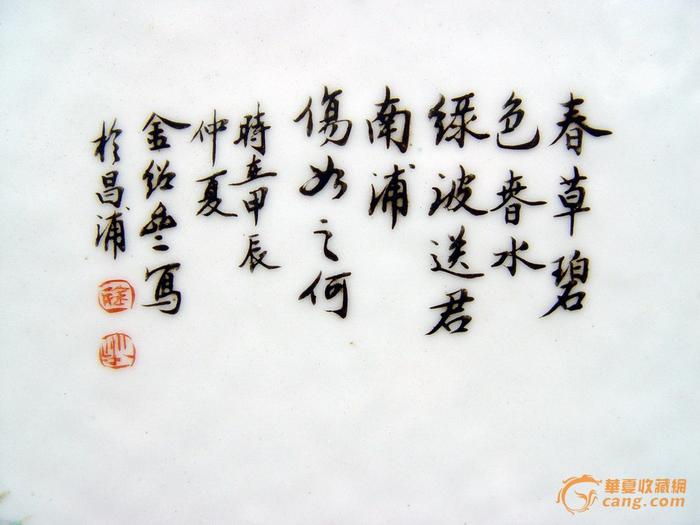 春草碧
色春水
綠波送君
南浦
傷如之何
時在甲辰
仲夏
金紹豐寫
於昌浦
華夏收藏網
cang.com